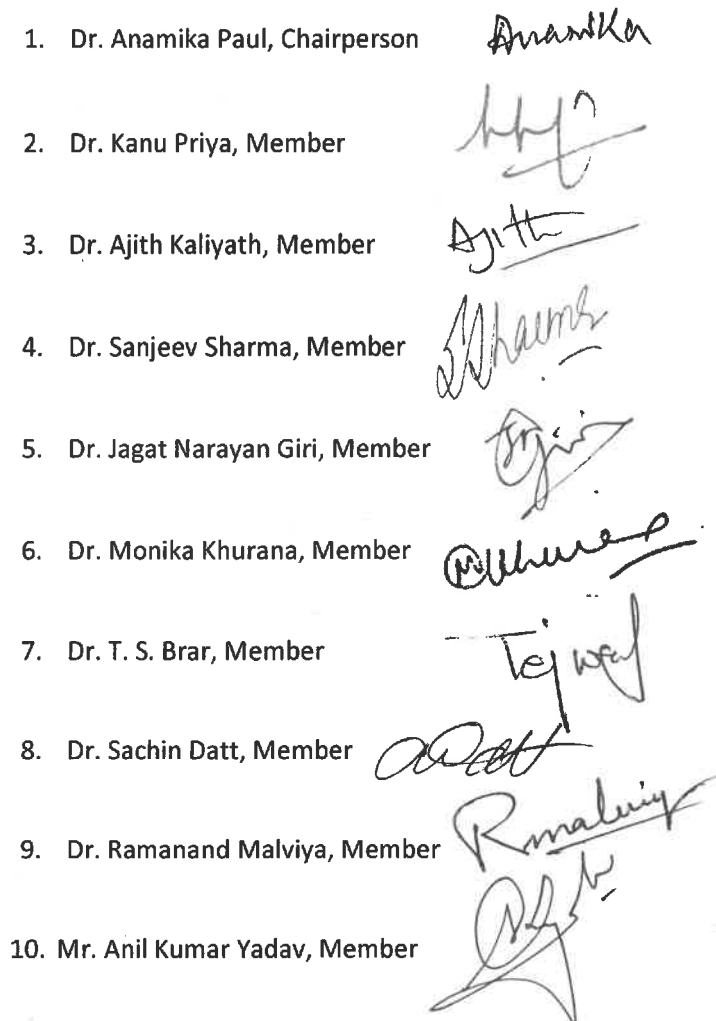 1. Dr. Anamika Paul, Chairperson Anamika
2. Dr. Kanu Priya, Member
3. Dr. Ajith Kaliyath, Member Ajith
4. Dr. Sanjeev Sharma, Member SSharma
5. Dr. Jagat Narayan Giri, Member
6. Dr. Monika Khurana, Member
7. Dr. T. S. Brar, Member
8. Dr. Sachin Datt, Member
9. Dr. Ramanand Malviya, Member Rmalviya
10. Mr. Anil Kumar Yadav, Member